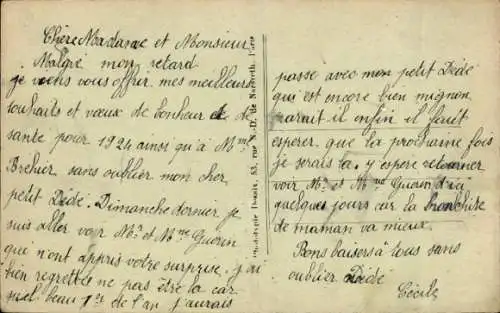 Chère Madame et Monsieur
Malgré mon retard
je viens vous offrir mes meilleurs
souhaits et vœux de bonheur et de
santé pour 1924 ainsi qu'à Mme
Bréhier sans oublier mon cher
petit Dédé. Dimanche dernier je
suis aller voir Mr. et Mme Guérin
que n'ont appris votre surprise, j'ai
bien regretter ne pas être là car
quel beau 1er de l'an j'aurais
passé avec mon petit Dédé
qui est encore bien mignon
parait il enfin il faut
esperer que la prochaine fois
je serais la. j'y espere retourner
voir Mr. et Mme Guérin d'ici
quelques jours car la bronchite
de maman va mieux.
Bons baisers à tous sans
oublier Dédé
Cécile